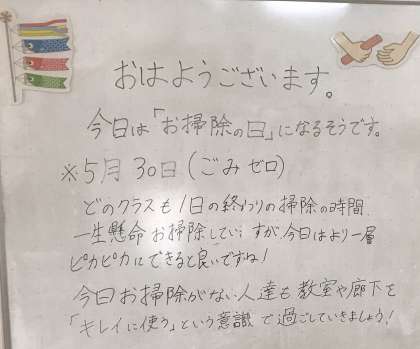 おはようございます。
今日は「お掃除の日」になるそうです。
※5月30日(ごみゼロ)
どのクラスも1日の終わりの掃除の時間
一生懸命お掃除していますが、今日はより一層
ピカピカにできると良いですね!
今日お掃除がない人達も教室や廊下を
「キレイに使う」という意識で過ごしていきましょう!